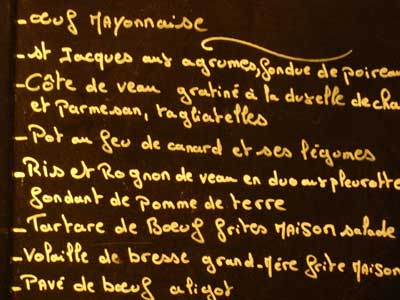 - œuf Mayonnaise
- St Jacques aux agrumes, fondue de poireau
- Côte de veau gratiné à la duxelle de cha
et Parmesan, tagliatelles
- Pot au feu de canard et ses légumes
- Ris et Rognon de veau en duo aux pleurotte
fondant de pomme de terre
- Tartare de Bœuf frites Maison salade
- Volaille de bresse grand-Mère frite Maison
- Pavé de bœuf aligot